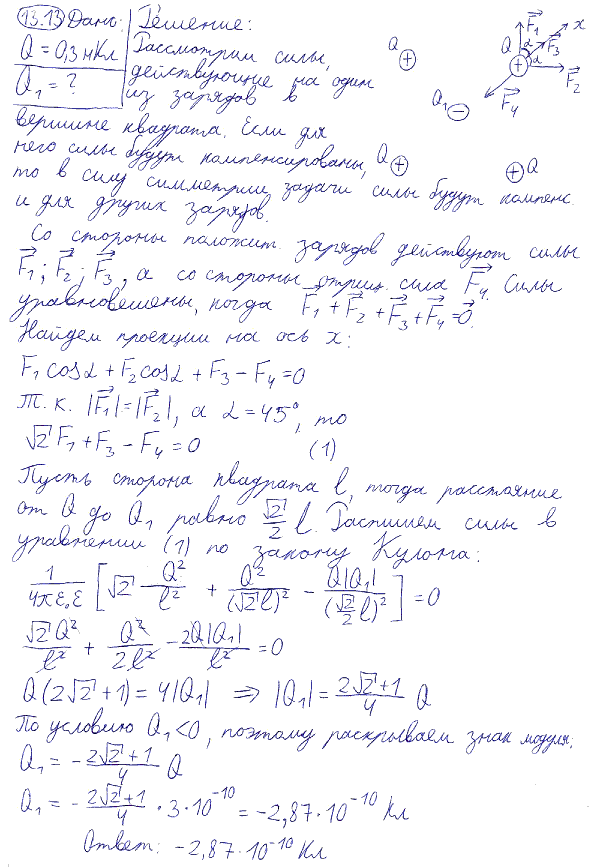 13.13 Дано: Решение:
Q = 0,3 нКл
Q₁ = ?
Рассмотрим силы,
действующие на один
из зарядов в
вершине квадрата. Если для
него силы будут компенсированы,
то в силу симметрии задачи силы будут компенс.
и для других зарядов.
Q
Q F₁ x
F₃
α α
F₂
Q₁
F₄
Q
Q
Со стороны положит. зарядов действуют силы
F₁; F₂; F₃, а со стороны отриц. сила F₄. Силы
уравновешены, когда F₁ + F₂ + F₃ + F₄ = 0.
Найдем проекции на ось x:
F₁ cosα + F₂ cosα + F₃ – F₄ = 0
Т. к. |F₁| = |F₂|, а α = 45°, то
√2 F₁ + F₃ – F₄ = 0 (1)
Пусть сторона квадрата l, тогда расстояние
от Q до Q₁ равно √2/2 l. Распишем силы в
уравнении (1) по закону Кулона:
1/4πε₀ε [√2 Q²/l² + Q²/(√2 l)² – Q|Q₁|/(√2/2 l)²] = 0
√2 Q²/l² + Q²/2l² – 2Q|Q₁|/l² = 0
Q(2√2 + 1) = 4|Q₁| ⇒ |Q₁| = 2√2+1/4 Q
По условию Q₁<0, поэтому раскрываем знак модуля:
Q₁ = – 2√2+1/4 Q
Q₁ = – 2√2+1/4 · 3 · 10⁻¹⁰ = –2,87 · 10⁻¹⁰ Кл
Ответ: –2,87·10⁻¹⁰ Кл